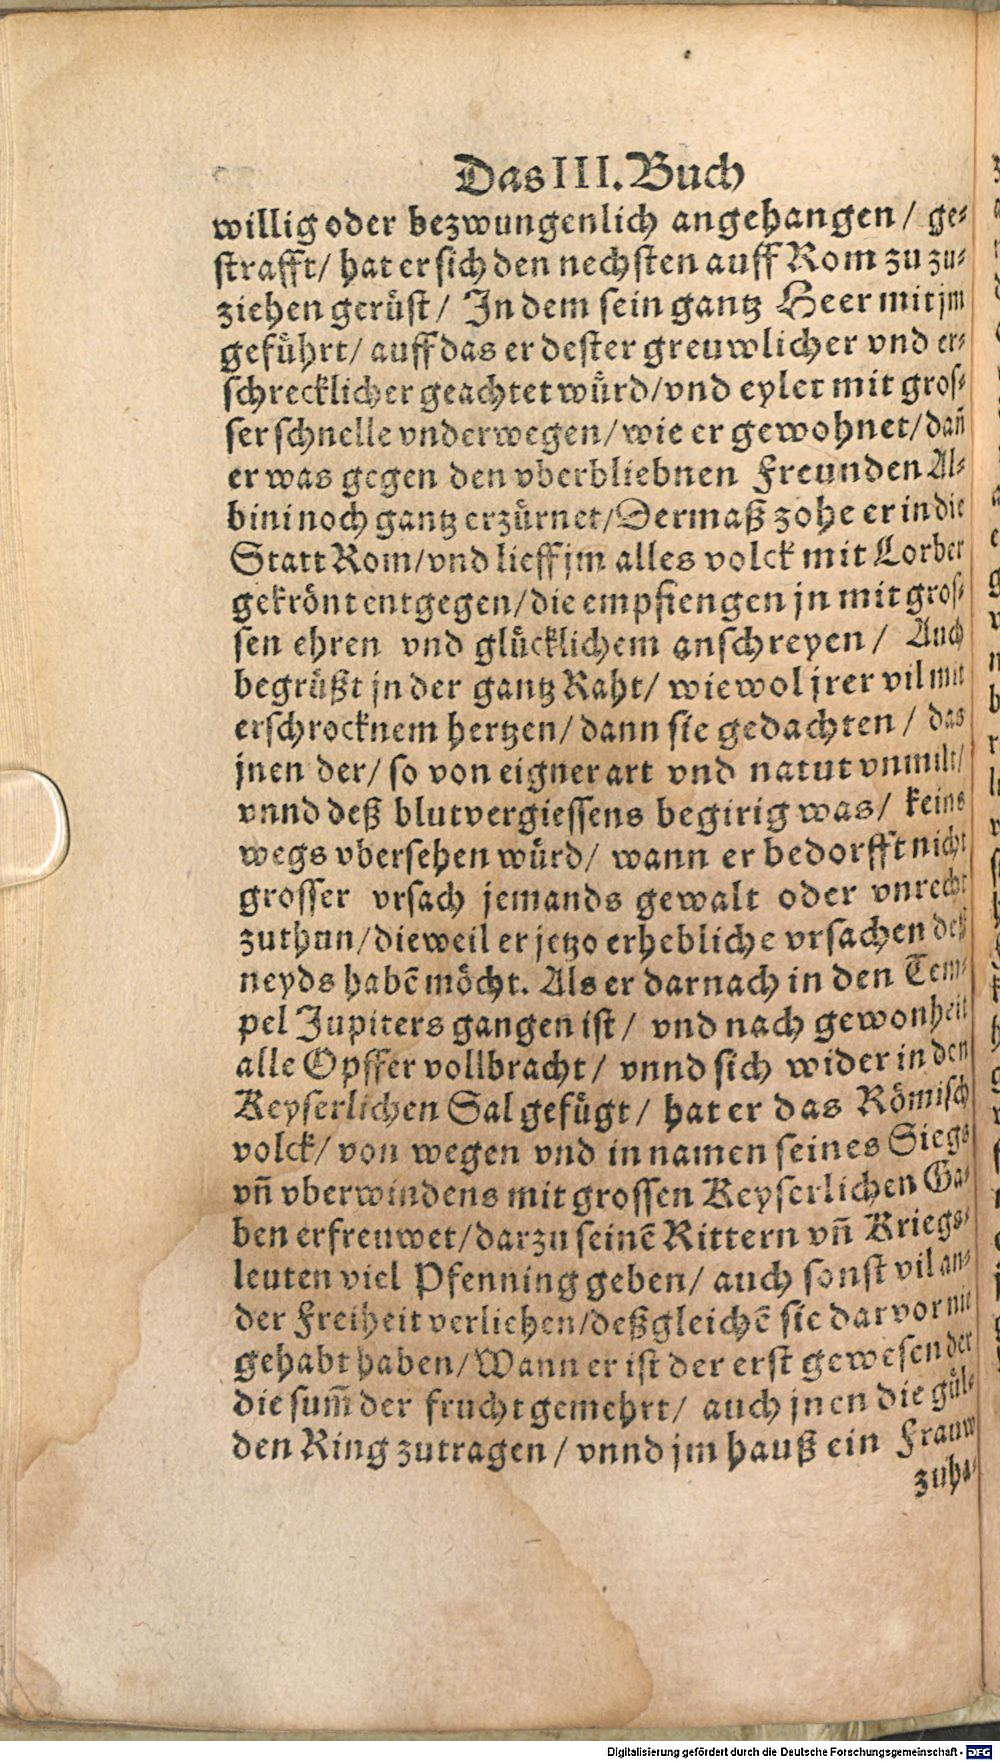 Das III. Buch
willig oder bezwungenlich angehangen / ge⸗
strafft / hat er sich den nechsten auff Rom zu zu⸗
ziehen gerüst / In dem sein gantz Heer mit jm
geführt / auff das er dester greuwlicher vnd er⸗
schrecklicher geachtet würd / vnd eylet mit gros⸗
ser schnelle vnderwegen / wie er gewohnet / dañ
er was gegen den vberbliebnen Freunden Al⸗
bini noch gantz erzürnet / Dermaß zohe er in die
Statt Rom / vnd lieff jm alles volck mit Lorber
gekrönt entgegen / die empfiengen jn mit gros⸗
sen ehren vnd glücklichem anschreyen / Auch
begrüßt jn der gantz Raht / wiewol jrer vil mit
erschrocknem hertzen / dann sie gedachten / das
jnen der / so von eigner art vnd natut vnmilt /
vnnd deß blutvergiessens begirig was / keins
wegs vbersehen würd / wann er bedorfft nicht
grosser vrsach jemands gewalt oder vnrecht
zuthun / dieweil er jetzo erhebliche vrsachen deß
neyds habē möcht. Als er darnach in den Tem⸗
pel Jupiters gangen ist / vnd nach gewonheit
alle Opffer vollbracht / vnnd sich wider in den
Keyserlichen Sal gefügt / hat er das Römisch
volck / von wegen vnd in namen seines Siegs
vñ vberwindens mit grossen Keyserlichen Ga⸗
ben erfreuwet / darzu seinē Rittern vñ Kriegs⸗
leuten viel Pfenning geben / auch sonst vil an⸗
der Freiheit verliehen / deßgleichē sie darvor nit
gehabt haben / Wann er ist der erst gewesen der
die sum̄ der frucht gemehrt / auch jnen die gül⸗
den Ring zutragen / vnnd jm hauß ein Frauw
zuha⸗
Digitalisierung gefördert durch die Deutsche Forschungsgemeinschaft - DFG